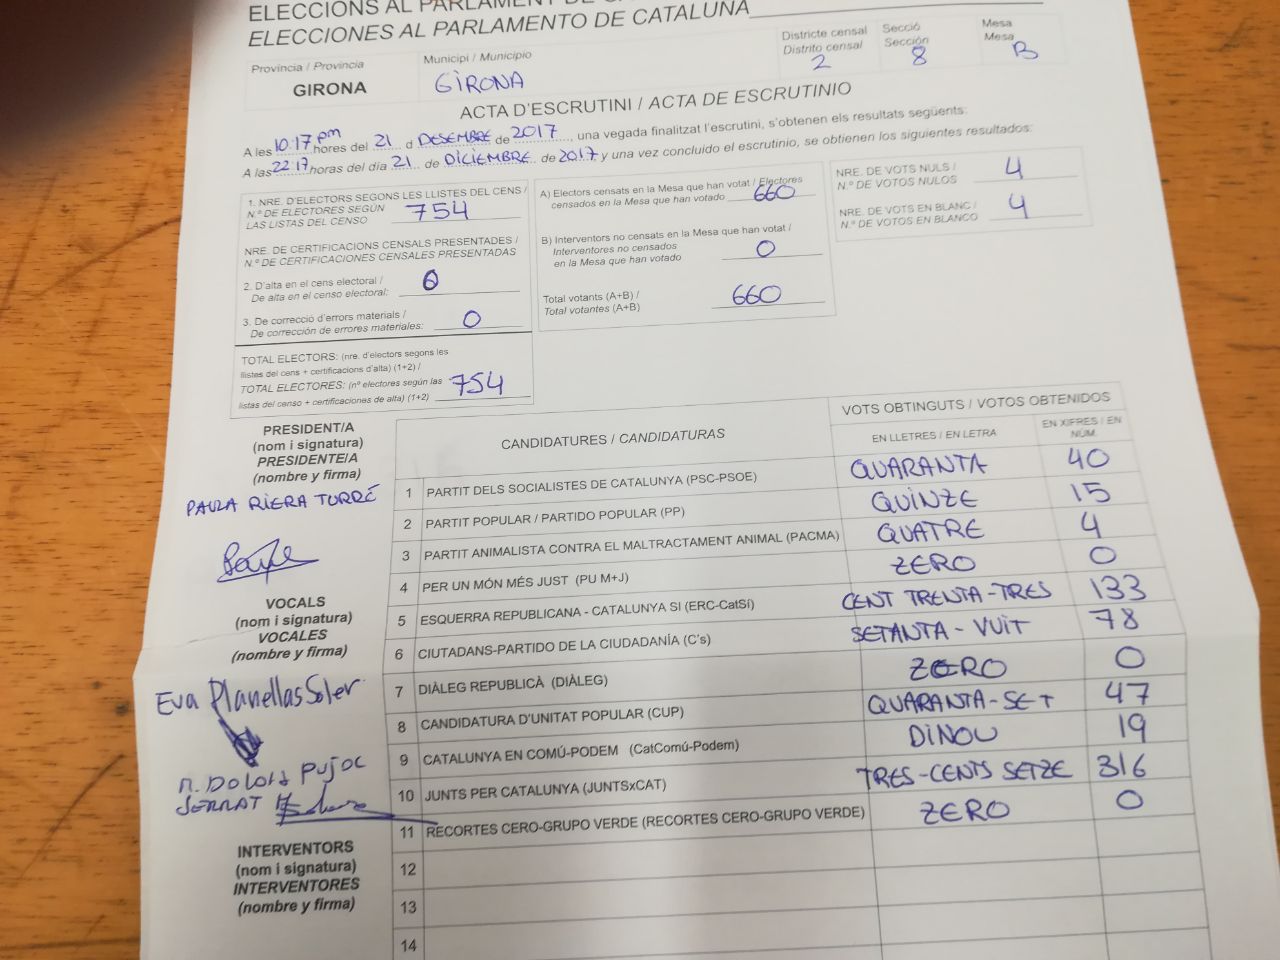 ELECCIONS AL PARLAMENT DE
ELECCIONES AL PARLAMENTO DE CATALUÑA
Província / Provincia
GIRONA
Municipi / Municipio
GIRONA
Districte censal
Distrito censal
2
Secció
Sección
8
Mesa
Mesa
B
ACTA D'ESCRUTINI / ACTA DE ESCRUTINIO
A les 10:17 pm hores del 21 d DESEMBRE de 2017, una vegada finalitzat l'escrutini, s'obtenen els resultats següents:
A las 22:17 horas del día 21 de DICIEMBRE de 2017 y una vez concluido el escrutinio, se obtienen los siguientes resultados:
1. NRE. D'ELECTORS SEGONS LES LLISTES DEL CENS /
N.º DE ELECTORES SEGÚN
LAS LISTAS DEL CENSO 754
NRE. DE CERTIFICACIONS CENSALS PRESENTADES /
N.º DE CERTIFICACIONES CENSALES PRESENTADAS
2. D'alta en el cens electoral /
De alta en el censo electoral: 0
3. De correcció d'errors materials /
De corrección de errores materiales: 0
TOTAL ELECTORS: (nre. d'electors segons les
llistes del cens + certificacions d'alta) (1+2) /
TOTAL ELECTORES: (nº electores según las
listas del censo + certificaciones de alta) (1+2) 754
A) Electors censats en la Mesa que han votat / Electores
censados en la Mesa que han votado 660
B) Interventors no censats en la Mesa que han votat /
Interventores no censados
en la Mesa que han votado 0
Total votants (A+B) /
Total votantes (A+B) 660
NRE. DE VOTS NULS /
N.º DE VOTOS NULOS 4
NRE. DE VOTS EN BLANC /
N.º DE VOTOS EN BLANCO 4
PRESIDENT/A
(nom i signatura)
PRESIDENTE/A
(nombre y firma)
PAULA RIERA TURRÉ
VOCALS
(nom i signatura)
VOCALES
(nombre y firma)
Eva Planellas Soler
M. DOLORS PUJOL
SERRAT
INTERVENTORS
(nom i signatura)
INTERVENTORES
(nombre y firma)
CANDIDATURES / CANDIDATURAS
VOTS OBTINGUTS / VOTOS OBTENIDOS
EN LLETRES / EN LETRA
EN XIFRES / EN NÚM.
1 PARTIT DELS SOCIALISTES DE CATALUNYA (PSC-PSOE) QUARANTA 40
2 PARTIT POPULAR / PARTIDO POPULAR (PP) QUINZE 15
3 PARTIT ANIMALISTA CONTRA EL MALTRACTAMENT ANIMAL (PACMA) QUATRE 4
4 PER UN MÓN MÉS JUST (PU M+J) ZERO 0
5 ESQUERRA REPUBLICANA - CATALUNYA SI (ERC-CatSí) CENT TRENTA-TRES 133
6 CIUTADANS-PARTIDO DE LA CIUDADANÍA (C's) SETANTA-VUIT 78
7 DIÀLEG REPUBLICÀ (DIÀLEG) ZERO 0
8 CANDIDATURA D'UNITAT POPULAR (CUP) QUARANTA-SET 47
9 CATALUNYA EN COMÚ-PODEM (CatComú-Podem) DINOU 19
10 JUNTS PER CATALUNYA (JUNTSxCAT) TRES-CENTS SETZE 316
11 RECORTES CERO-GRUPO VERDE (RECORTES CERO-GRUPO VERDE) ZERO 0
12
13
14